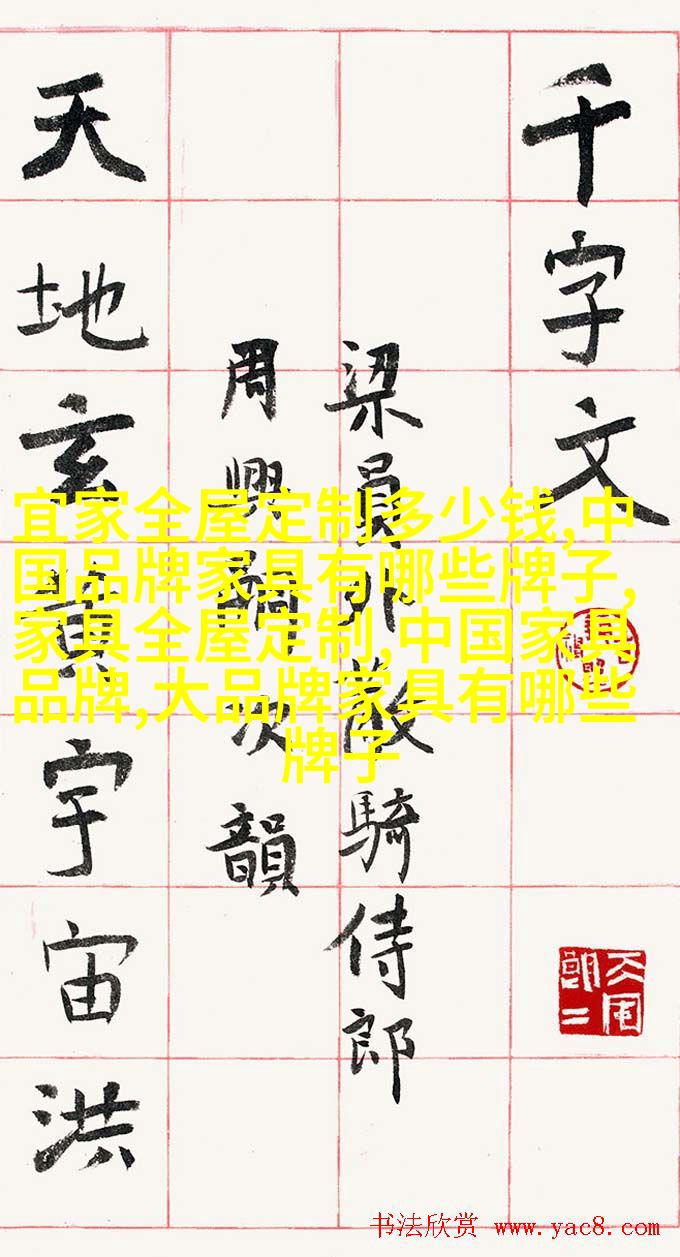 千字文
梁員外散騎侍郎
周興嗣次韻
天地玄黃宇宙洪
宜家全屋定制多少钱,中
国品牌家具有哪些牌子,
家具全屋定制,中国家具
品牌,大品牌家具有哪些
牌子
书法欣赏 www.yac8.com